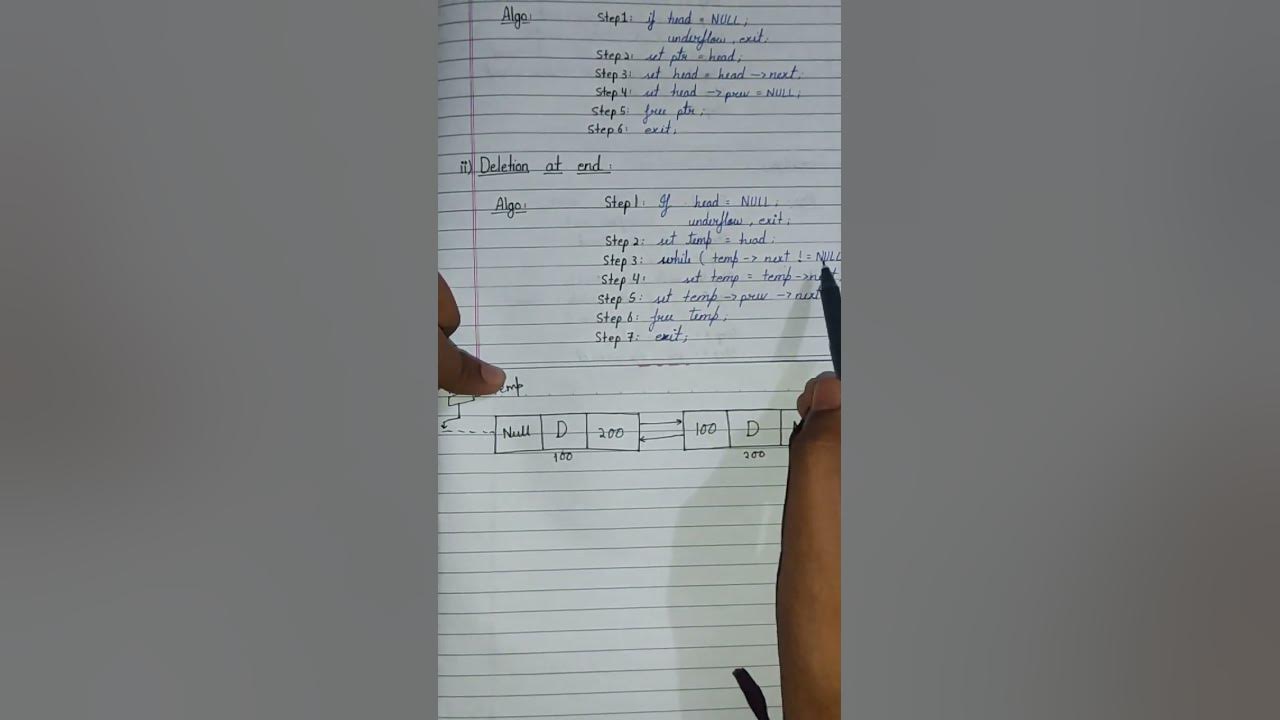 Algo: Step 1: if head = NULL;
underflow, exit;
Step 2: set ptr = head;
Step 3: set head = head -> next;
Step 4: set head -> prev = NULL;
Step 5: free ptr;
Step 6: exit;
ii) Deletion at end:
Algo: Step 1: If head = NULL;
underflow, exit;
Step 2: set temp = head;
Step 3: while ( temp -> next != NULL
Step 4: set temp = temp -> next
Step 5: set temp -> prev -> next
Step 6: free temp;
Step 7: exit;
Null D 200 100 D
100 200